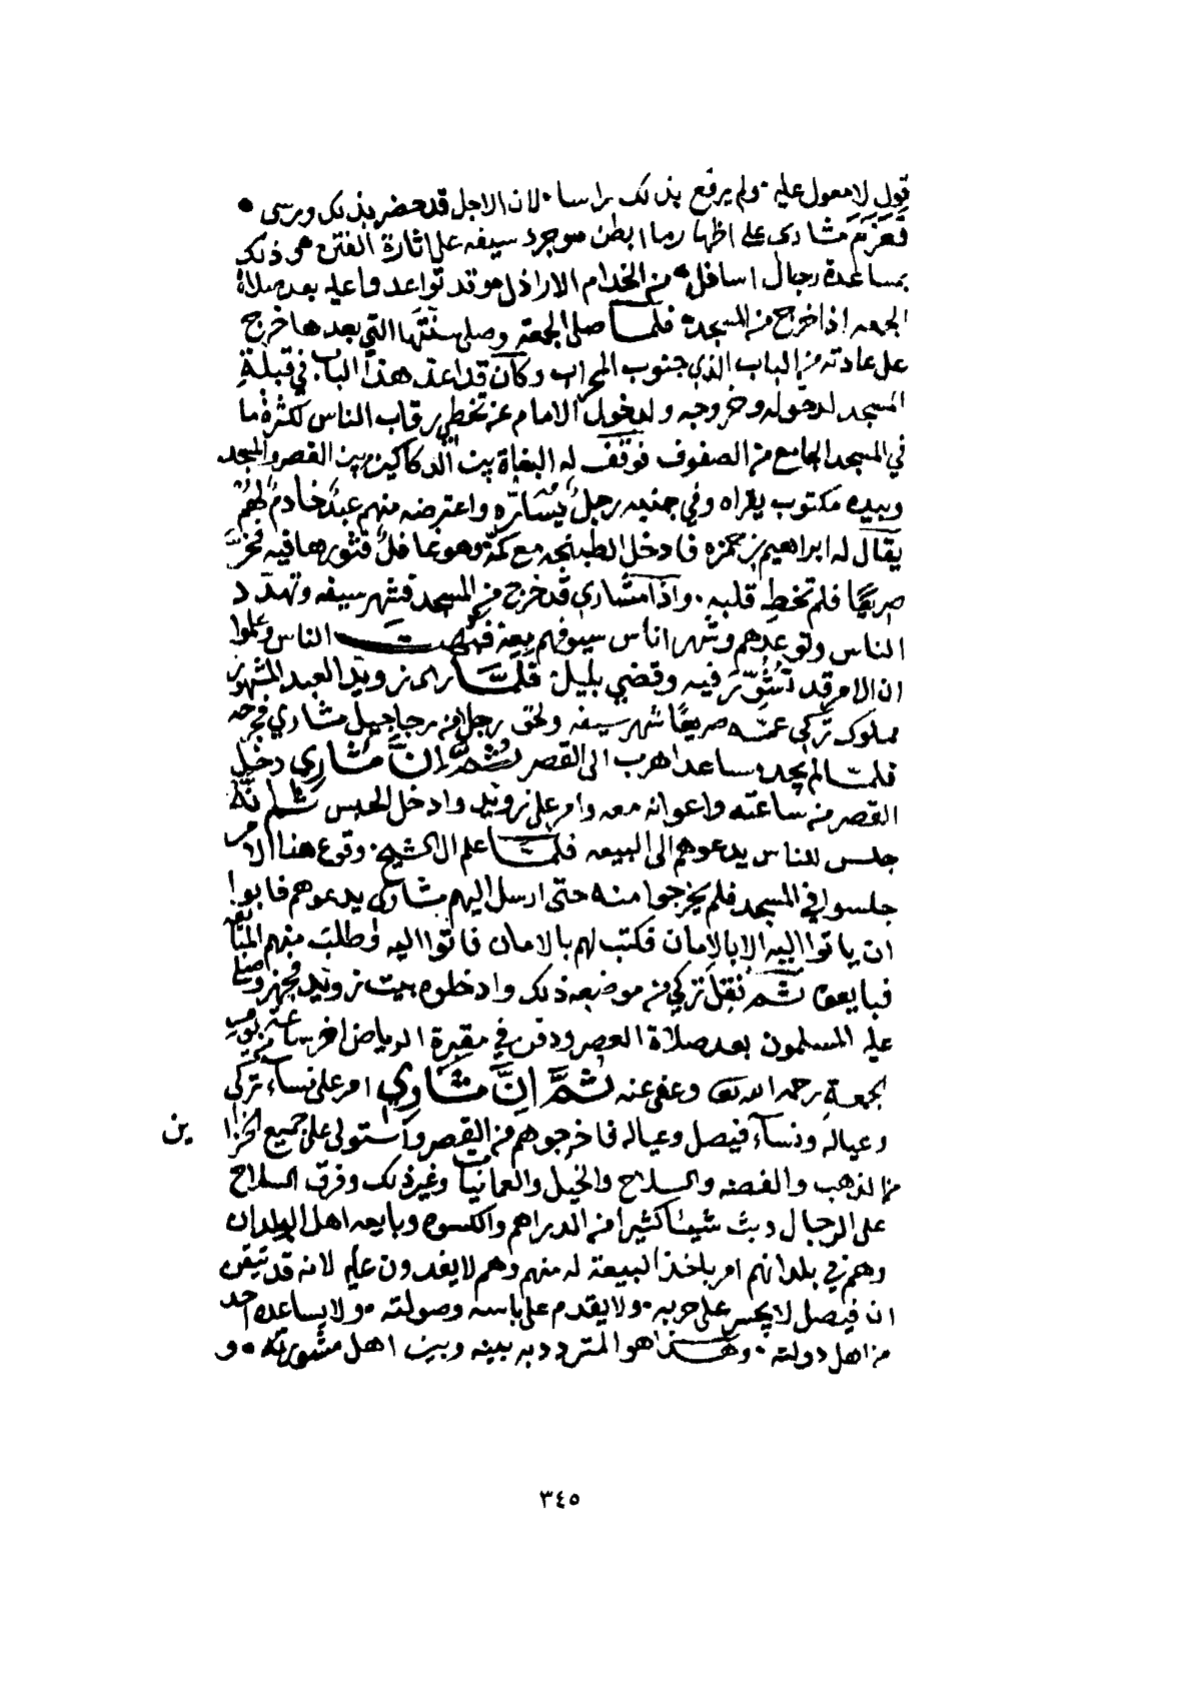 قول لا معول عليه ولم يرفع بذلك راسا لان الاجل قد حضر بذلك ورسى
فعزم مشاري على اظهار ما ابطن وجرد سيفه على اثارة الفتن هو ذلك
بمساعدة رجال اسافل من الخدام الاراذل وقد تواعدوا عليه بعد صلاة
الجمعه اذا خرج من المسجد فلما صلى الجمعة وصلى سنتها التي بعدها خرج
على عادته من الباب الذي جنوب المحراب وكان قد اعد هذا الباب في قبلة
المسجد لدخوله وخروجه ولدخول الامام عن تخطي رقاب الناس لكثرة ما
في المسجد الجامع من الصفوف فوقف له البغاة بين الدكاكين بين القصر والمسجد
وبيده مكتوب يقراه وفي جنبه رجل يسارّه واعترضه منهم عبد خادم لهم
يقال له ابراهيم بن حمزه فادخل الطبنجه مع كمه وهو غافل فثورها فيه فخرّ
صريعًا فلم تخط قلبه واذا مشاري قد خرج من المسجد فشهر سيفه وتهدد
الناس وتوعدهم وشهر اناس سيوفهم معه فبهت الناس وعلموا
ان الامر قد تشوّر فيه وقضي بليل فلمّا راى زويد العبد المشهور
مملوك تركي عمّه صريعًا شهر سيفه ولحق رجلا من رجاجيل مشاري فجرحه
فلما لم يجد مساعدا هرب الى القصر ثمّ إنّ مشاري دخل
القصر من ساعته واعوانه معه وامر على زويد وادخل الحبس ثم انّه
جلس للناس يدعوهم الى البيعه فلما علم ال الشيخ وقوع هذا الامر
جلسوا في المسجد فلم يخرجوا منه حتى ارسل اليهم مشاري يدعوهم فابوا
ان ياتوا اليه الا بالامان فكتب لهم بالامان فاتوا اليه وطلب منهم المبايعة
فبايعوه ثمّ نقل تركي من موضعه ذلك وادخلوه بيت زويد فجهز وصلى
عليه المسلمون بعد صلاة العصر ودفن في مقبرة الرياض اخر ساعة من يوم
الجمعة رحمه الله تعالى وعفى عنه ثمّ إنّ مشاري امر على نساء تركي
وعياله ونساء فيصل وعياله فاخرجوهم من القصر واستولى على جميع الخزاين
من الذهب والفضه والسلاح والخيل والعمانيات وغير ذلك وفرق السلاح
على الرجال وبث شيئا كثيرا من الدراهم والكسوه وبايعه اهل البلدان
وهم في بلدانهم امر باخذ البيعة له منهم وهم لا يفدون عليه لانه قد تيقن
ان فيصل لا يجسر على حربه ولا يقدم على باسه وصولته ولا يساعده احد
من اهل دولته وهذا هو المتردد به بينه وبين اهل مشورته و
٣٤٥